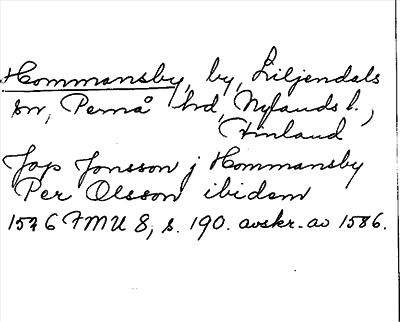 Hommansby, by, Liljendals
sn, Pernå hd, Nylands l.,
Finland
Jop Jonsson j Hommansby
Per Olsson ibidem
1546 FMU 8, s. 190. avskr. av 1586.